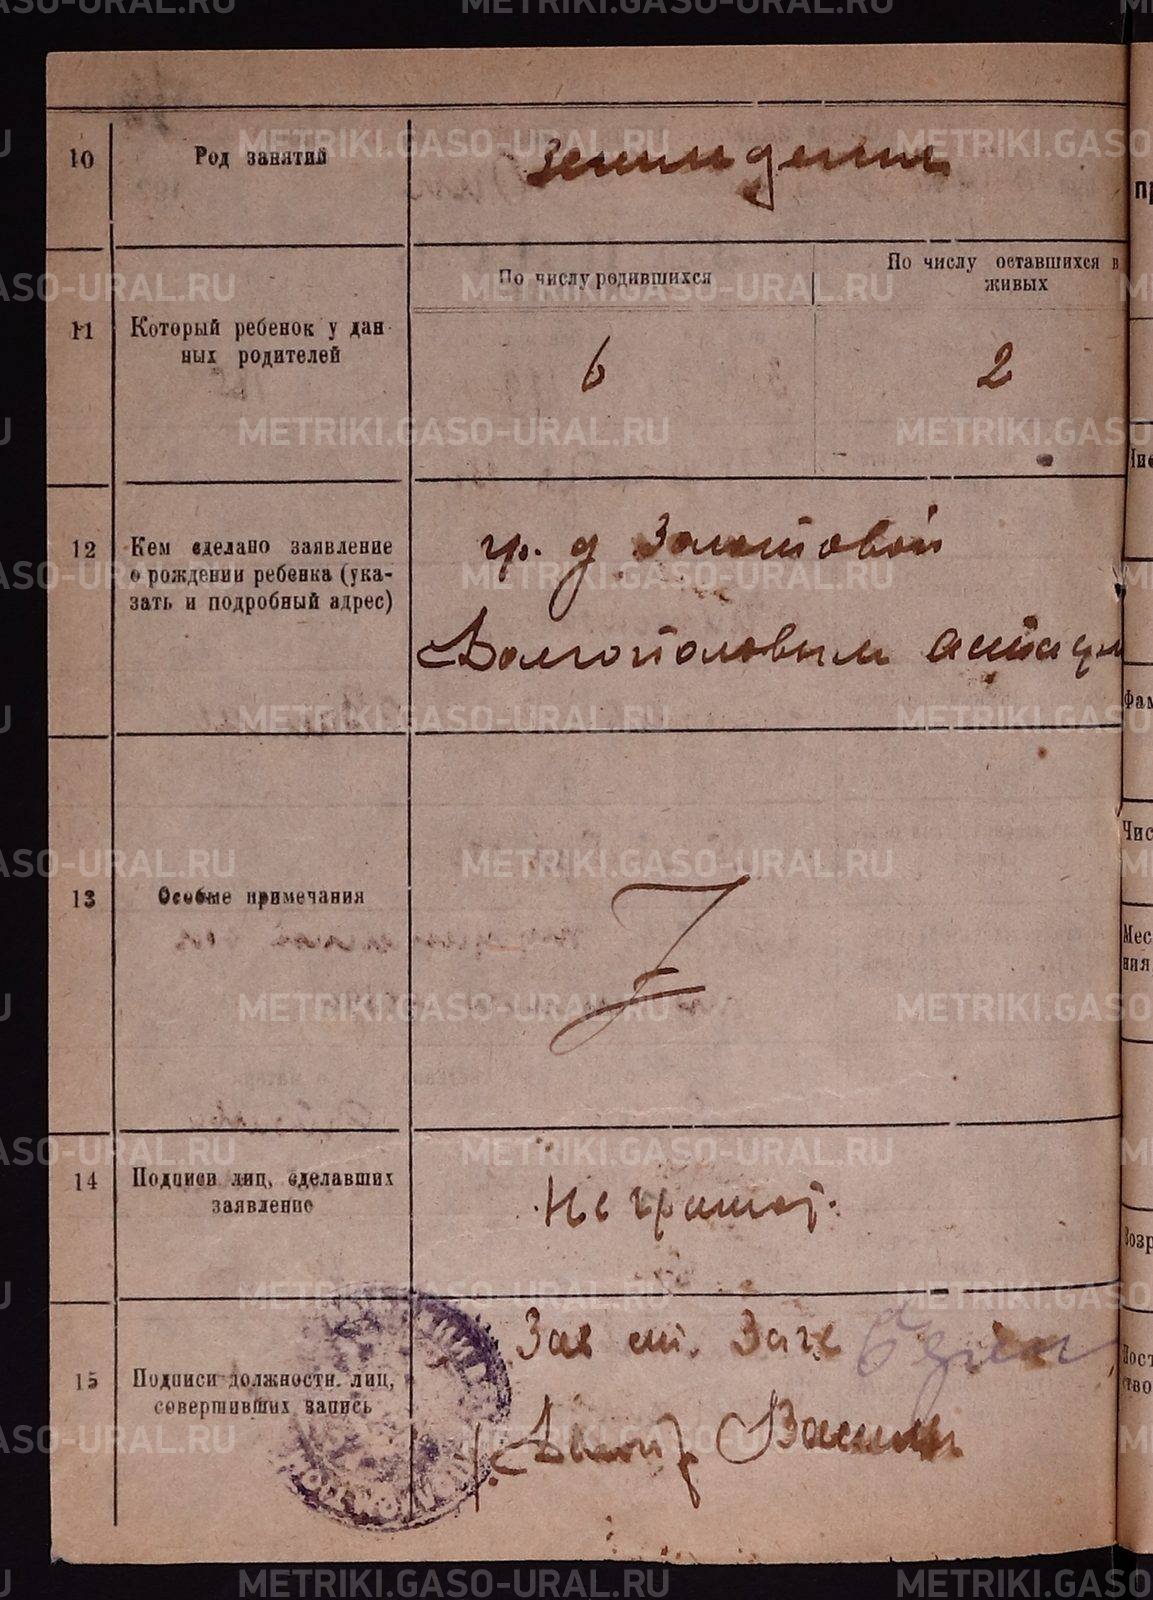 10
Род занятий
Землиделия
По числу родившихся
По числу оставшихся в
живых
11
Который ребенок у дан
ных родителей
6
2
12
Кем сделано заявление
о рождении ребенка (ука-
зать и подробный адрес)
гр. д Золотовой
Долгополовым
13
Особые примечания
14
Подписи лиц, сделавших
заявление
Не грамот.
15
Подписи должностн. лиц,
совершивших запись
Зав ст. Загс
Делопр Васильев
METRIKI.GASO-URAL.RU